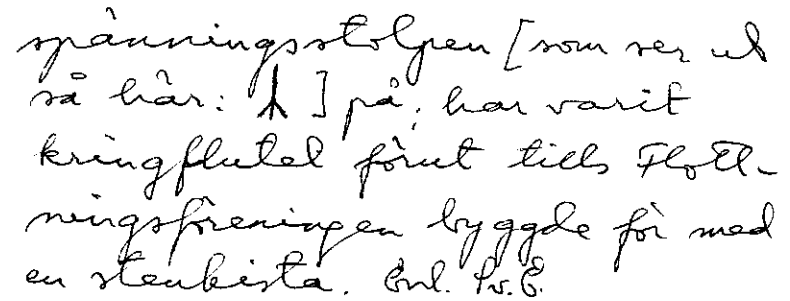 spänningsstolpen [som ser ut
så här: ] på, har varit
kringflutet förut tills Flott-
ningsföreningen byggde för med
en stenkista. Enl. Sv.E.